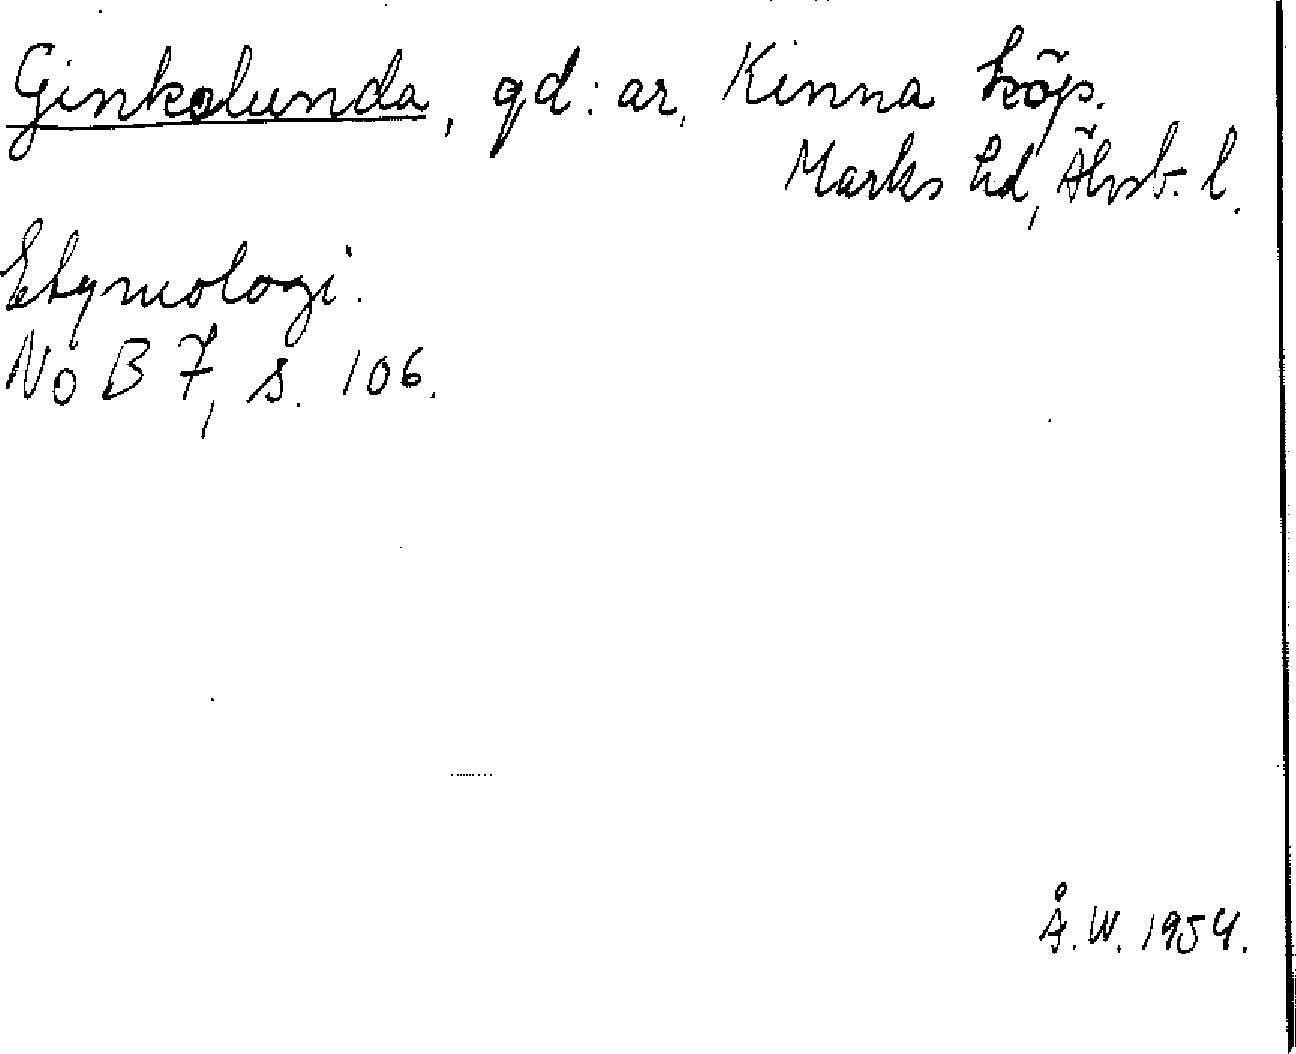 Ginkalunda, gd:ar, Kinna köp.
Marks hd, Älvsb. l.
Etymologi.
NoB 7, s. 106.
Å.W. 1954.